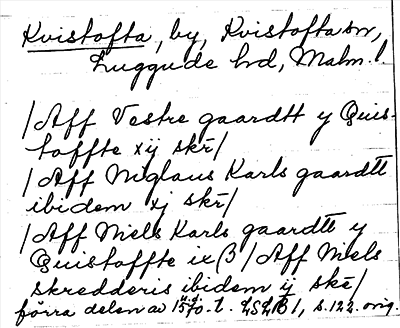 Kvistofta, by, Kvistofta sn,
Luggude hd, Malm. l.
/Aff Vestre gaardtt y Quis-
toffte xij skr/
/Aff Niglaus Karls gaardtt
ibidem xj skr/
/Aff Niels Karls gaardtt y
Quistoffte ix β/Aff Niels
skredderis ibidem ij skr/
förra delen av 1570-t. LSLB 1, s. 122. orig.